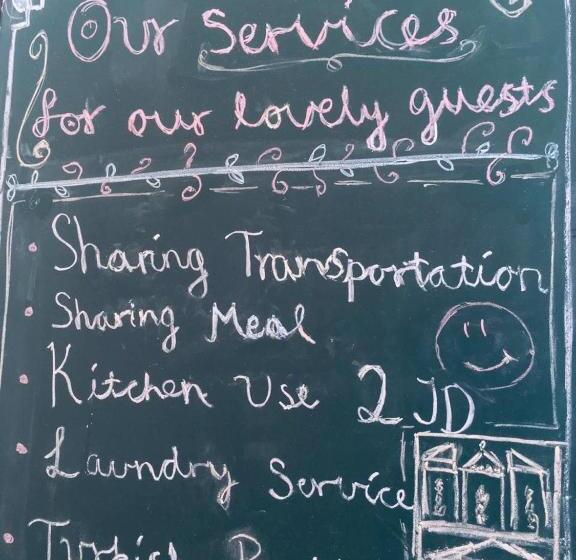 Our Services
for our lovely guests
Sharing Transportation
Sharing Meal
Kitchen Use 2 JD
Laundry Service